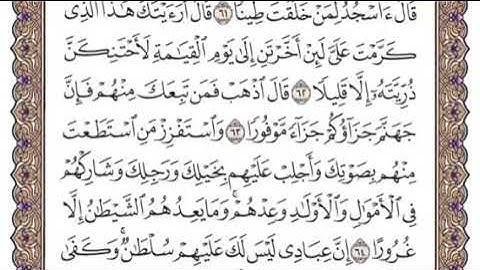 قَالَ ءَأَسْجُدُ لِمَنْ خَلَقْتَ طِينًا ٦١ قَالَ أَرَءَيْتَكَ هَٰذَا ٱلَّذِى
كَرَّمْتَ عَلَىَّ لَئِنْ أَخَّرْتَنِ إِلَىٰ يَوْمِ ٱلْقِيَٰمَةِ لَأَحْتَنِكَنَّ
ذُرِّيَّتَهُۥٓ إِلَّا قَلِيلًا ٦٢ قَالَ ٱذْهَبْ فَمَن تَبِعَكَ مِنْهُمْ فَإِنَّ
جَهَنَّمَ جَزَآؤُكُمْ جَزَآءً مَّوْفُورًا ٦٣ وَٱسْتَفْزِزْ مَنِ ٱسْتَطَعْتَ
مِنْهُم بِصَوْتِكَ وَأَجْلِبْ عَلَيْهِم بِخَيْلِكَ وَرَجِلِكَ وَشَارِكْهُمْ
فِى ٱلْأَمْوَٰلِ وَٱلْأَوْلَٰدِ وَعِدْهُمْ ۚ وَمَا يَعِدُهُمُ ٱلشَّيْطَٰنُ إِلَّا
غُرُورًا ٦٤ إِنَّ عِبَادِى لَيْسَ لَكَ عَلَيْهِمْ سُلْطَٰنٌ ۚ وَكَفَىٰ